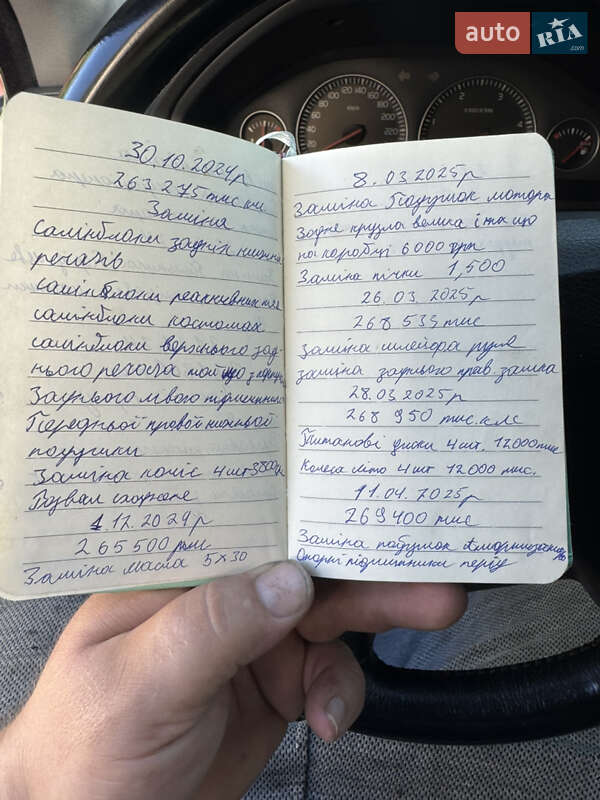 auto RIA .com
30.10.2024р
263 275 тис км
Заміна
самінблоки задніх нижніх
речагів
самінблоки реактивних тяг
самінблоки косточках
самінблоки верхнього зад-
нього речага той що з пер
Заднього лівого підшипника
Передньої правой нижньої
подушки
Заміна коліс 4 шт 3800
Розвал сходжене
1.12.2024р
265500 тис
Заміна масла 5х30
8.03.2025р
Заміна Подушок мотора
Задня кругла велика і та що
на коробці 6000 грн
Заміна пічки 1,500
26.03.2025р
268 535 тис
Заміна шлейфа руля
заміна заднього прав. замка
28.03.2025р
268 950 тис.км
Титанові диски 4шт. 12000тис
Колеса літо 4шт 12000 тис.
11.04.2025р
269400 тис
Заміна подушок амортизаторів
Опорні підшипники перед